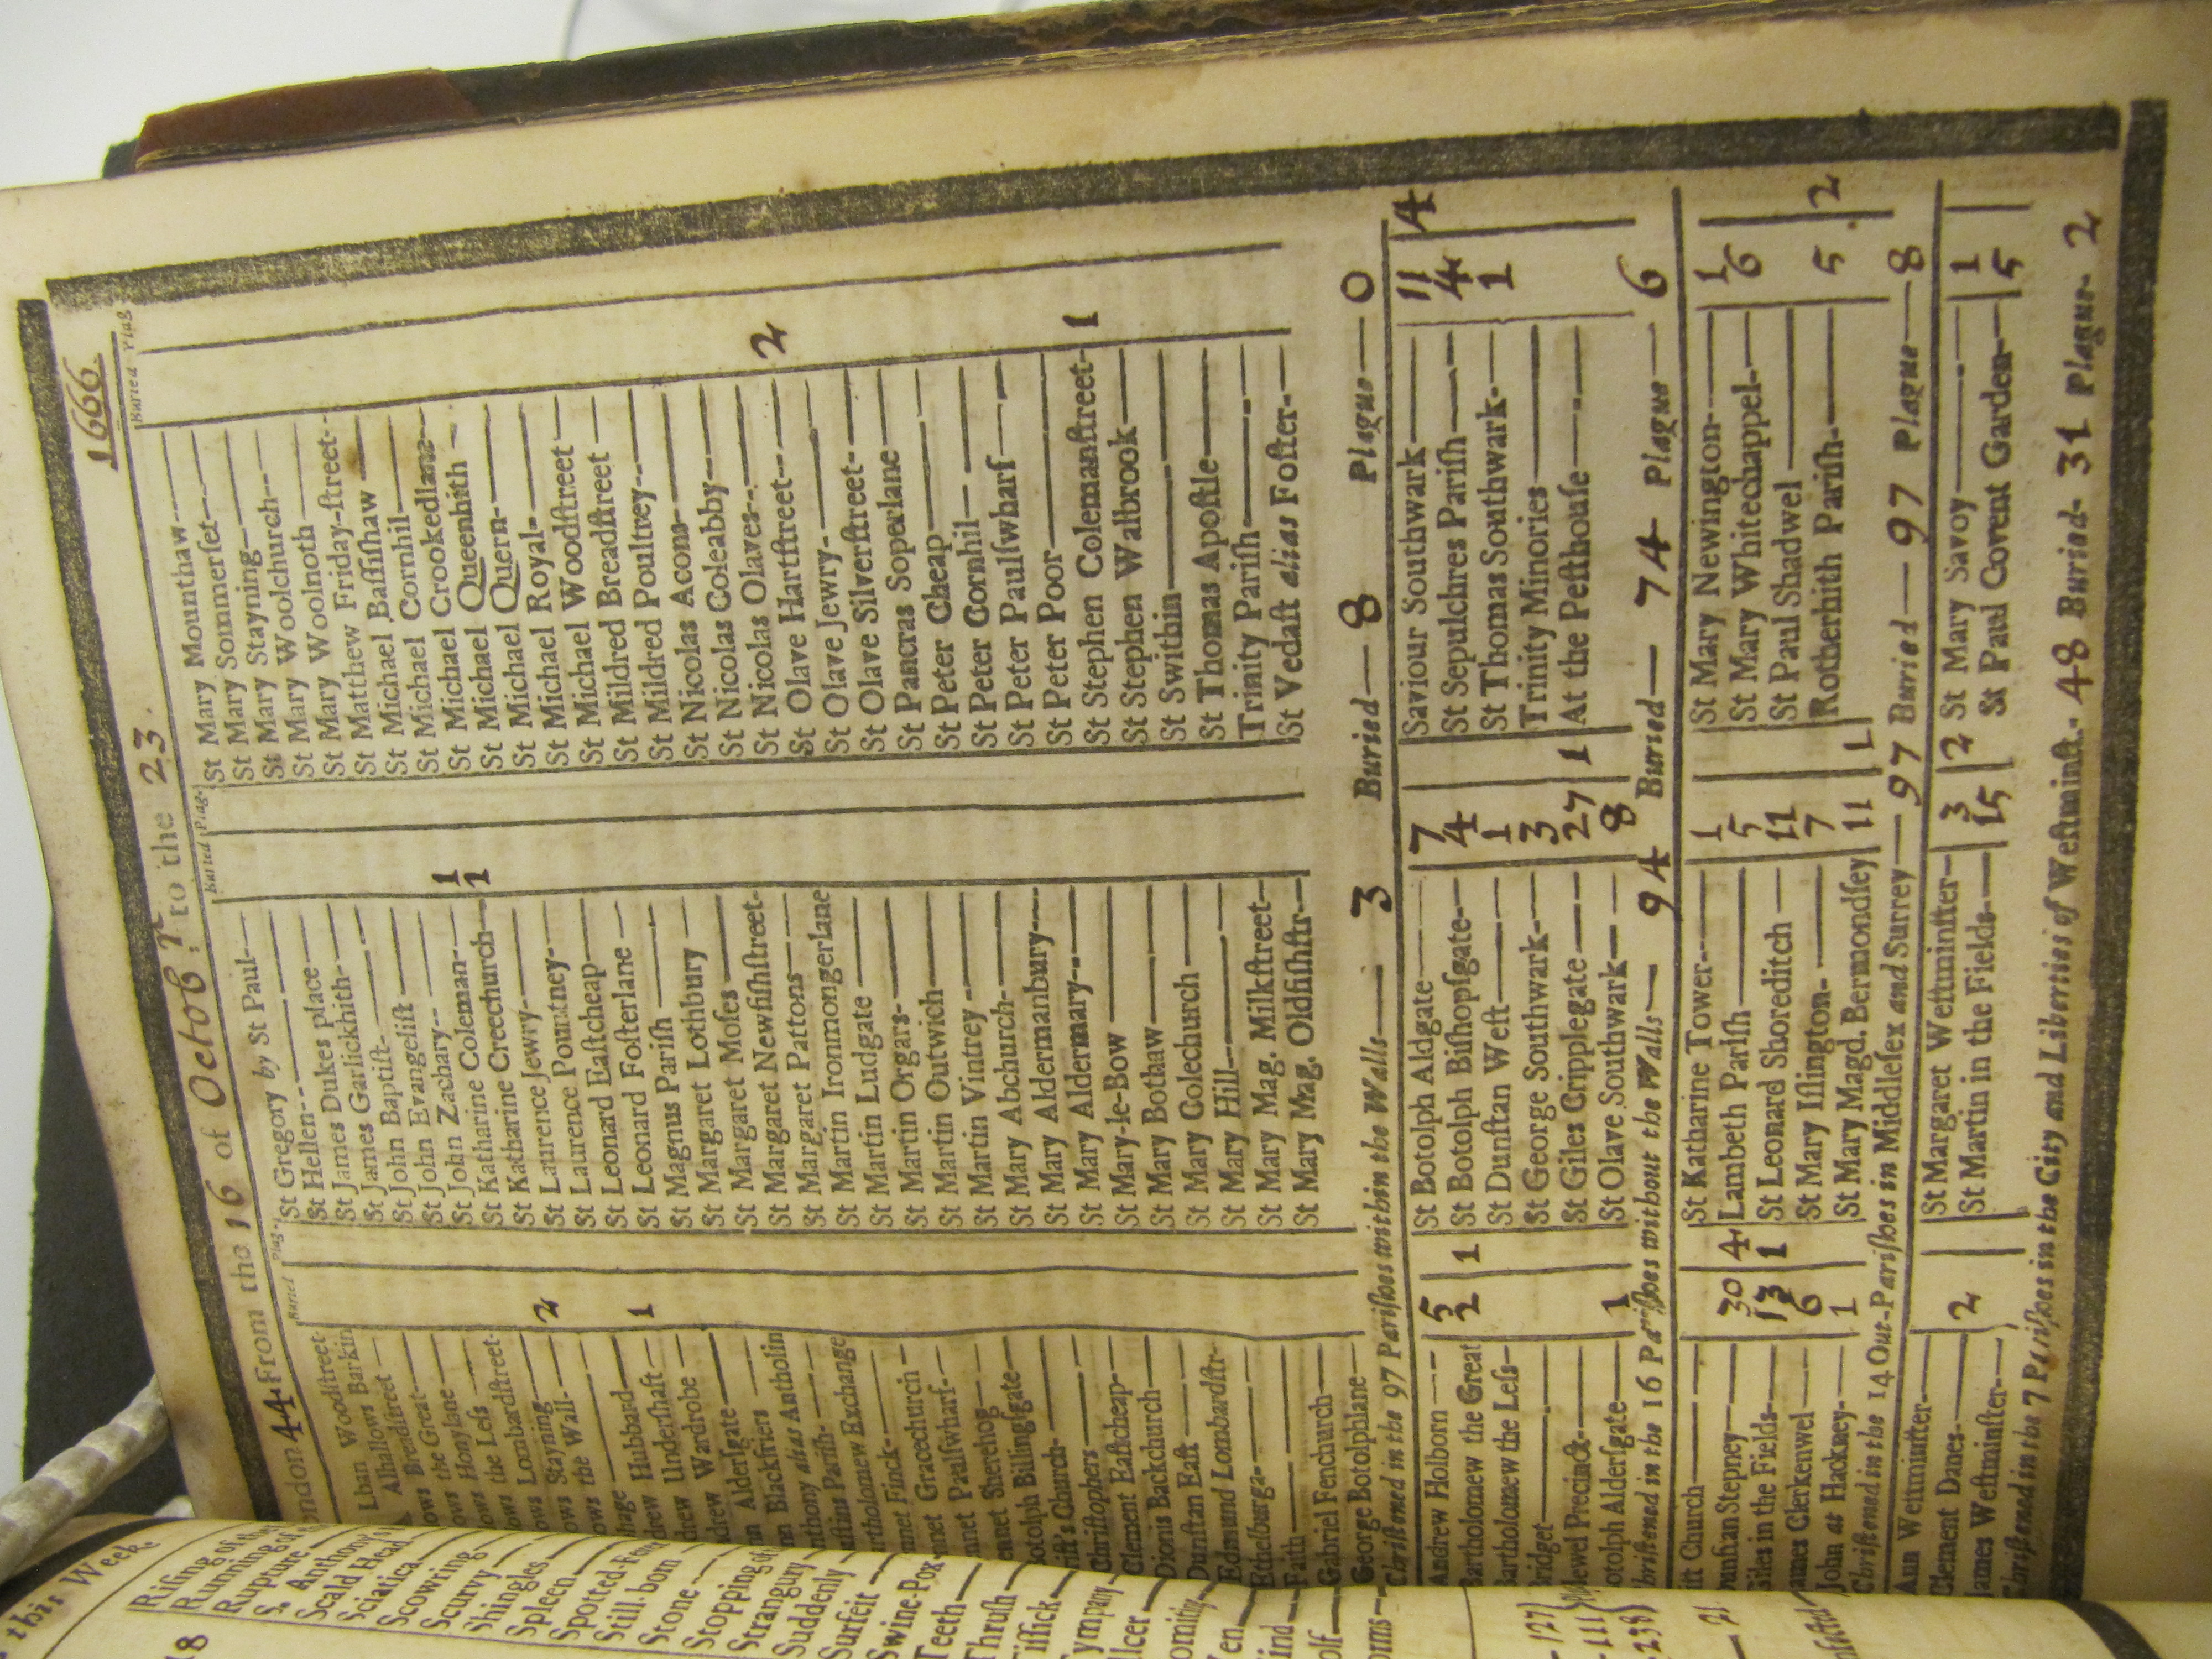 this Week.
18
Rising of the
Running of
Rupture
S. Anthony
Scald Head
Sciatica
Scowring
Scurvy
Shingles
Spleen
Spotted
Still-born
Stone
Stopping of
Strangury
Suddenly
Surfeit
Swine-Pox
Teeth
Thrush
Tissick
127
111
238
91
1666
London 44 From the 16 of Octob,r to the 23.
Buried Plag.
Woodstreet
Alhallows Barkin
Breadstreet
the Great
Honylane
the Less
Lombardstreet
Stayning 2
the Wall
Hubbard 1
Undershaft
Wardrobe
Aldersgate
Blackfriers
alias Antholin
Parish
Bartholomew Exchange
Finck
Gracechurch
Paulswharf
Sherehog
Botolph Billingsgate
Church
Christophers
Clement Eastcheap
Dionis Backchurch
Dunstan East
Edmund Lombardstr
Ethelburga
Faith
Gabriel Fenchurch
George Botolphlane
Buried Plag.
St Gregory by St Paul
St Hellen
St James Dukes place
St James Garlickhith
St John Baptist
St John Evangelist
St John Zachary
St Katharine Coleman 1
St Katharine Creechurch 1
St Laurence Jewry
St Laurence Pountney
St Leonard Eastcheap
St Leonard Fosterlane
St Magnus Parish
St Margaret Lothbury
St Margaret Moses
St Margaret Newfishstreet
St Margaret Pattons
St Martin Ironmongerlane
St Martin Ludgate
St Martin Orgars
St Martin Outwich
St Martin Vintrey
St Mary Abchurch
St Mary Aldermanbury
St Mary Aldermary
St Mary-le-Bow
St Mary Bothaw
St Mary Colechurch
St Mary Hill
St Mary Mag. Milkstreet
St Mary Mag. Oldfishstr
Buried Plag
St Mary Mounthaw
St Mary Sommerset
St Mary Stayning
St Mary Woolchurch
St Mary Woolnoth
St Matthew Friday-street
St Michael Bassishaw
St Michael Cornhil
St Michael Crookedlane
St Michael Queenhith
St Michael Quern
St Michael Royal
St Michael Woodstreet
St Mildred Breadstreet
St Mildred Poultrey
St Nicolas Acons
St Nicolas Coleabby
St Nicolas Olaves 2
St Olave Hartstreet
St Olave Jewry
St Olave Silverstreet
St Pancras Soperlane
St Peter Cheap
St Peter Cornhil
St Peter Paulswharf
St Peter Poor
St Stephen Colemanstreet 1
St Stephen Walbrook
St Swithin
St Thomas Apostle
Trinity Parish
St Vedast alias Foster
Christened in the 97 Parishes within the Walls 3 Buried 8 Plague 0
Andrew Holborn 5
Bartholomew the Great 2 1
Bartholomew the Less
Bridget
Bridewel Precinct
Botolph Aldersgate 1
St Botolph Aldgate 7
St Botolph Bishopsgate 4
St Dunstan West 1
St George Southwark 3
St Giles Cripplegate 27 1
St Olave Southwark 8
Saviour Southwark 11 4
St Sepulchres Parish 4
St Thomas Southwark 1
Trinity Minories
At the Pesthouse
Christened in the 16 Parishes without the Walls 94 Buried 74 Plague 6
Church
Dunstan Stepney 30 4
Giles in the Fields 13 1
James Clerkenwel 6
John at Hackney 1
St Katharine Tower 1
Lambeth Parish 5
St Leonard Shoreditch 11
St Mary Islington 7
St Mary Magd. Bermondsey 11 1
St Mary Newington 1
St Mary Whitechappel 6
St Paul Shadwel
Rotherhith Parish 5 2
Christened in the 14 Out-Parishes in Middlesex and Surrey 97 Buried 97 Plague 8
Ann Westminster
Clement Danes 2
James Westminster
St Margaret Westminster 3 2
St Martin in the Fields 15
St Mary Savoy 1
St Paul Covent Garden 5
Christened in the 7 Parishes in the City and Liberties of Westminst. 48 Buried 31 Plague 2